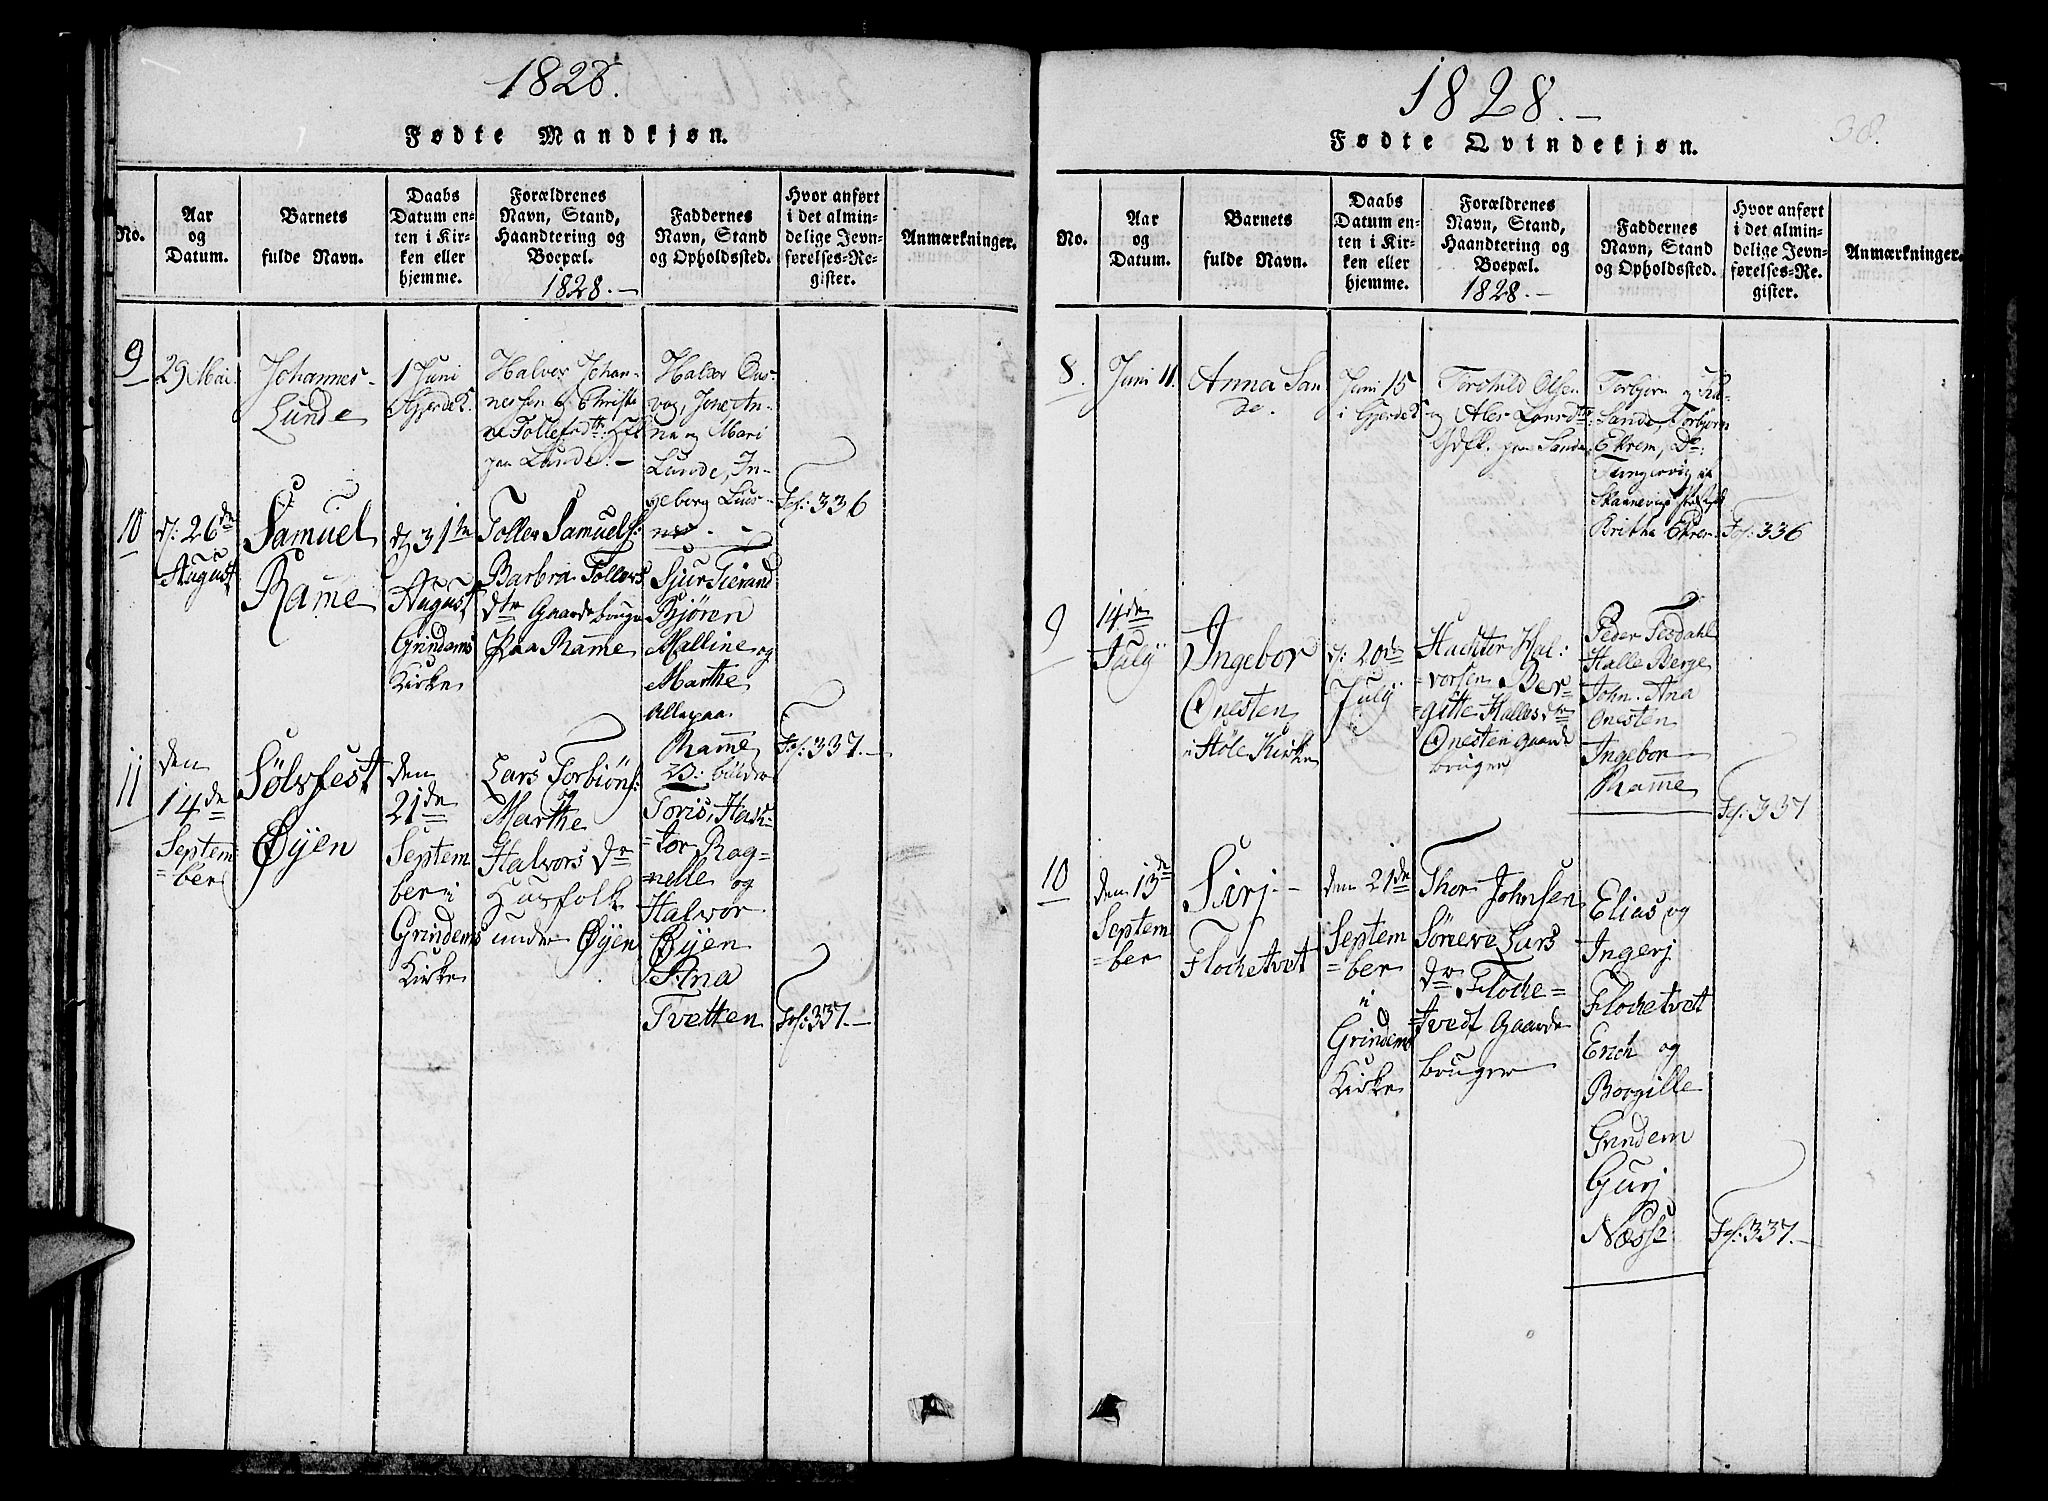 1828.
Fødte Mandkjøn.
No.
Aar
og
Datum.
Barnets
fulde Navn.
Daabs
Datum en-
ten i Kir-
ken eller
hjemme.
Forældrenes
Navn, Stand,
Haandtering og
Boepæl.
1828.-
Faddernes
Navn, Stand
og Opholdssted.
Hvor anført
i det almin-
delige Jevn-
førelses-Re-
gister.
Anmærkninger.
9
29 Mai.
Johannes
Lunde
1 Juni
Gjerde K.
Halvor Johan-
nessen og Christi-
ne Tollefsdtr:
paa Lunde.-
Halvor
Jone An-
na og Mari
Lunde, In-
geborg
Fol: 336
10
d: 26de
August
Samuel
Rame
d 31te
August
Grindems
Kirke
Tollev Samuels:
Barbra Tollevs
dtr Gaardebruger
Paa Rame
Sjur Tierand
Bjøren
Malline og
Marthe
Alle paa
Rame
Fol: 337.-
11
den
14de
Septem
=ber
Sølvfest
Øyen
den
21de
Septem
ber i
Grindems
Kirke
Lars Torbiøns:
og
Marthe
Halvors dr
Husfolk
under Øyen
Toris, Hack-
tor Rag=
nelle og
Halvor
Øyen
Ana
Tvetten
Fol: 337.-
1828.-
38.
Fødte Qvindekjøn.
No.
Aar
og
Datum.
Barnets
fulde Navn.
Daabs
Datum en-
ten i Kir-
ken eller
hjemme.
Forældrenes
Navn, Stand,
Haandtering og
Boepæl.
1828.-
Faddernes
Navn, Stand
og Opholdssted.
Hvor anført
i det almin-
delige Jevn-
førelses-Re-
gister.
Anmærkninger.
8.
Juni 11.
Anna San
de.
Juni 15
i Gjerde K
Torchild Olsen
og Larsdtr:
paa Sande
Torbjørn og
Sande, Torbjørn
Ekrem,
Britha Ekrem
Fol: 336
9
14de
July
Ingebor
Onesten
i Støle Kirke
d: 20de
July
Hachtor Hal:
=vorsen Ber-
=gitte Halles dtr
Onesten Gaarde
bruger
Peder Tesdahl
Halle Berge
John. Ana
Onesten
Ingebor
Rame
Fol: 337
10
den 13de
Septem
=ber
Sirj.-
Flochetvet
den 21de
Septem
=ber
i
Grindems
Kirke
Thor Johnsen
Søneve Lars
dr Floche=
=tvedt Gaarde
bruger
Elias og
Ingerj
Flochetvet
Erich og
Borgille
Grindem
Gurj
Næsse
Fol: 337.-